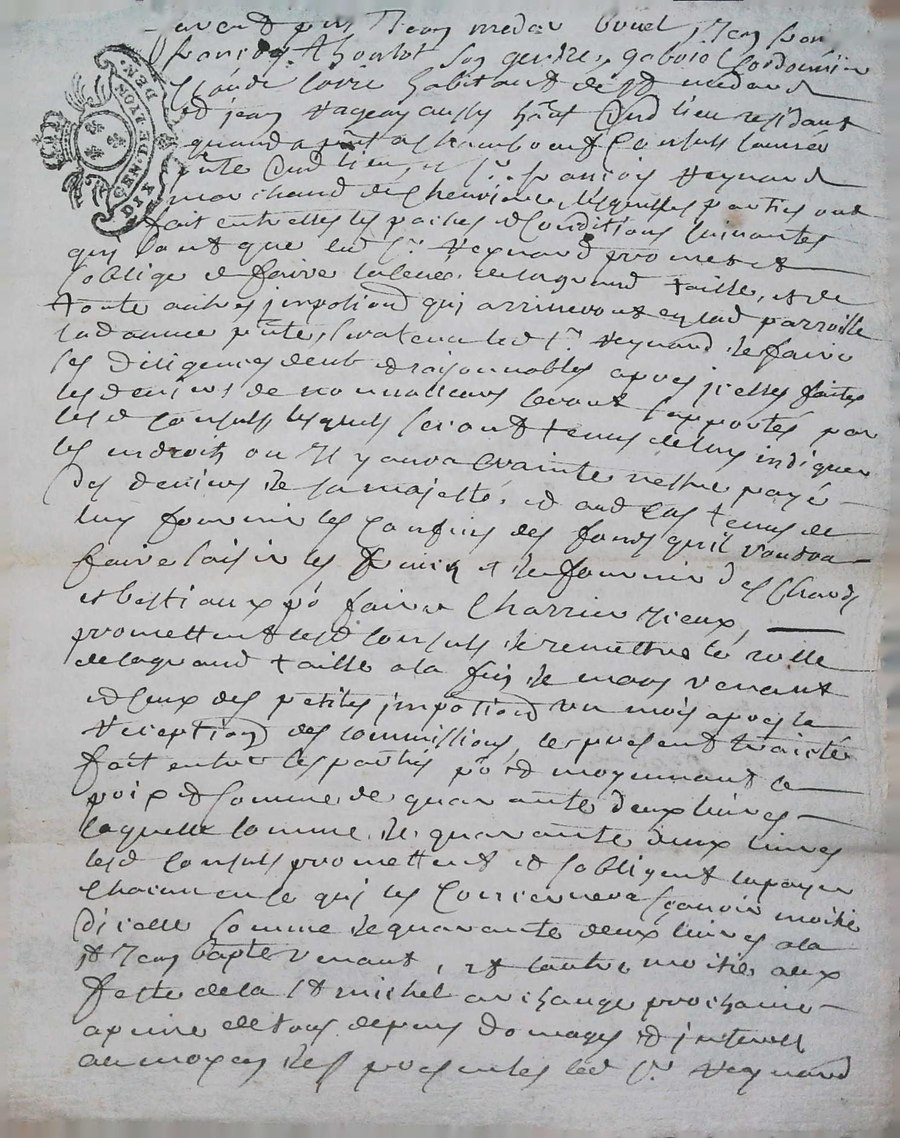 GEN. DE LYON. DIX DEN.
Jean
françois son gendre
Claude habitant de St medard
et jean aussy hñt dud lieu residant
quand a pñt a Consuls
dud lieu, et Sr. françois Reynaud
marchand de lesquelles parties ont
fait entrelles les paches et Conditions suivantes
qui sont que led Sr. Reynaud promet et
soblige de faire la levée de la grand taille, et de
toute autres impotions qui arriveront en lad parroisse
lad année pñte, led Sr. Reynaud de faire
les diligences deut et raisonnables apres jcelles faites
les deniers de seront suportés par
lesd Consuls lesquels seront tenus de luy indiquer
les endroits ou Il y aura Crainte nestre payé
des deniers de sa majesté, et aud Cas tenus de
luy fournir les Confins des fonds quil voudra
faire saisir les fruits et de fournir des Chards
et bestiaux po faire Charrier Iceux,
promettent lesd Consuls de remettre le rolle
de la grand taille a la fin de mars venant
et Ceux des petites jmpotions un mois apres la
Reception des Commissions, le present traicté
fait entre les parties moyennant le
prix et somme de quarante deux livres
laquelle somme de quarante deux livres
lesd Consuls promettent et sobligent la payer
Chacun en ce qui les Concernera scavoir moitié
dicelle somme de quarante deux livres a la
St Jean bapte venant, et lautre moitié aux
feste de la St michel archange prochaine
a peine de tous depens domages et jnterest
au moyen des presentes led Sr. Reynaud